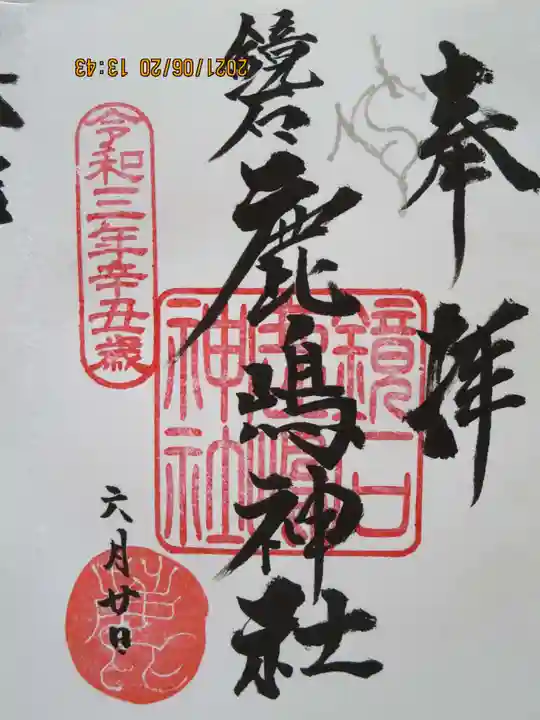 奉拝
鏡石
鹿嶋神社
鏡石
鹿嶋
神社
令和三年辛丑歳
六月廿日
鹿
2021/06/20 13:43